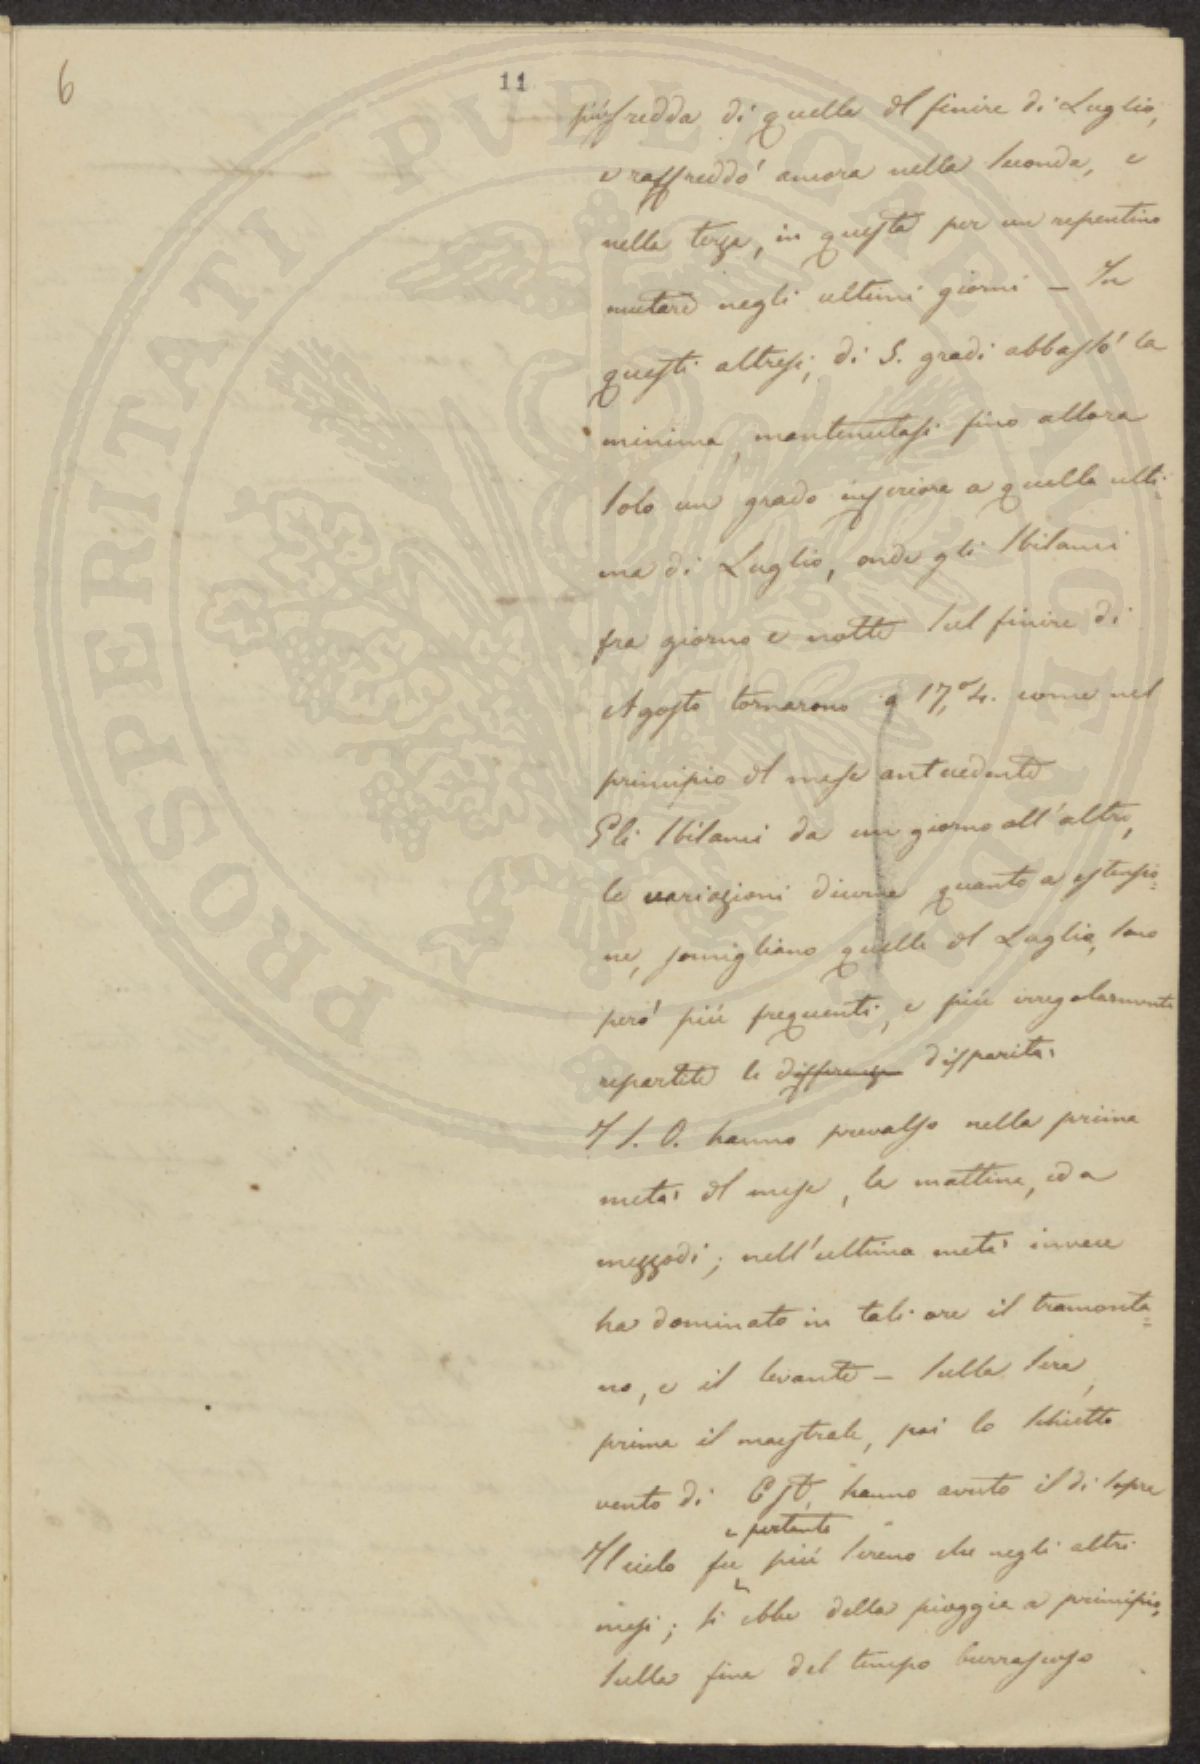 6
11
più fredda di quella del finire di Luglio,
e raffreddò ancora nella seconda, e
nella terza, in questa per un repentino
mutare negli ultimi giorni – In
questi altresì, di 5. gradi abbassò la
minima, mantenutasi fino allora
solo un grado inferiore a quella ulti-
ma di Luglio, onde gli sbilanci
fra giorno e notte sul finire di
Agosto tornarono a 17,°4. come nel
principio del mese antecedente
Gli sbilanci da un giorno all'altro,
le variazioni diurne quanto a estensio=
ne, somigliano quelle del Luglio, sono
però più frequenti, e più irregolarmente
repartite le differenze disparità
I S. O. hanno prevalso nella prima
metà del mese, la mattina, ed a
mezzodì; nell'ultima metà invece
ha dominato in tali ore il tramonta=
no, e il levante – sulla sera,
prima il maestrale, poi lo schietto
vento di Est, hanno avuto il di sopra
e pertanto
Il cielo fu più sereno che negli altri
mesi; si ebbe della pioggia a principio,
sulla fine del tempo burrascoso
PROSPERITATI PVBLICAE AVGENDAE